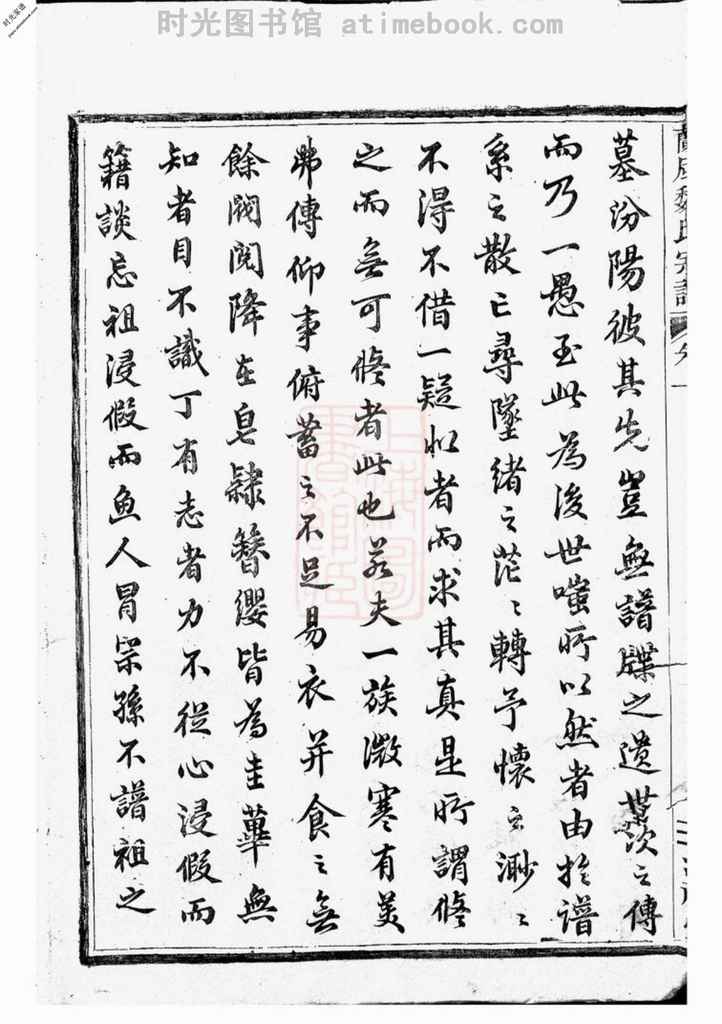 时光图书馆 atimebook.com
时光家谱
墓汾陽彼其先豈無譜牒之遺世次之傳
而乃一愚至此為後世嗤所以然者由於譜
系之散亡尋墜緒之茫〻轉予懷之渺〻
不得不借一疑似者而求其真是所謂脩
之而無可脩者此也若夫一族微寒有美
弗傳仰事俯蓄之不足易衣并食之無
餘閥閱降在皂隸簪纓皆為圭蓽無
知者目不識丁有志者力不從心浸假而
籍談忘祖浸假而魚人冒宗孫不譜祖之
魏氏宗譜